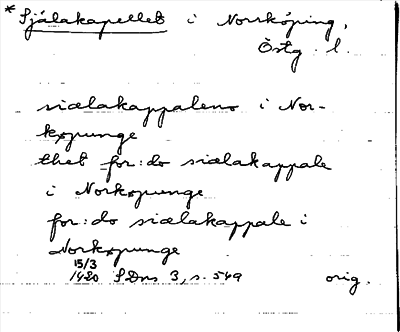 * Själakapellet i Norrköping,
Östg. l.
siælakappalens i Nor-
køpunge
thet for:do siælakappale
i Norkøpunge
for:do siælakappale i
Norkøpunge
15/3
1420 SDns 3, s. 549 orig.